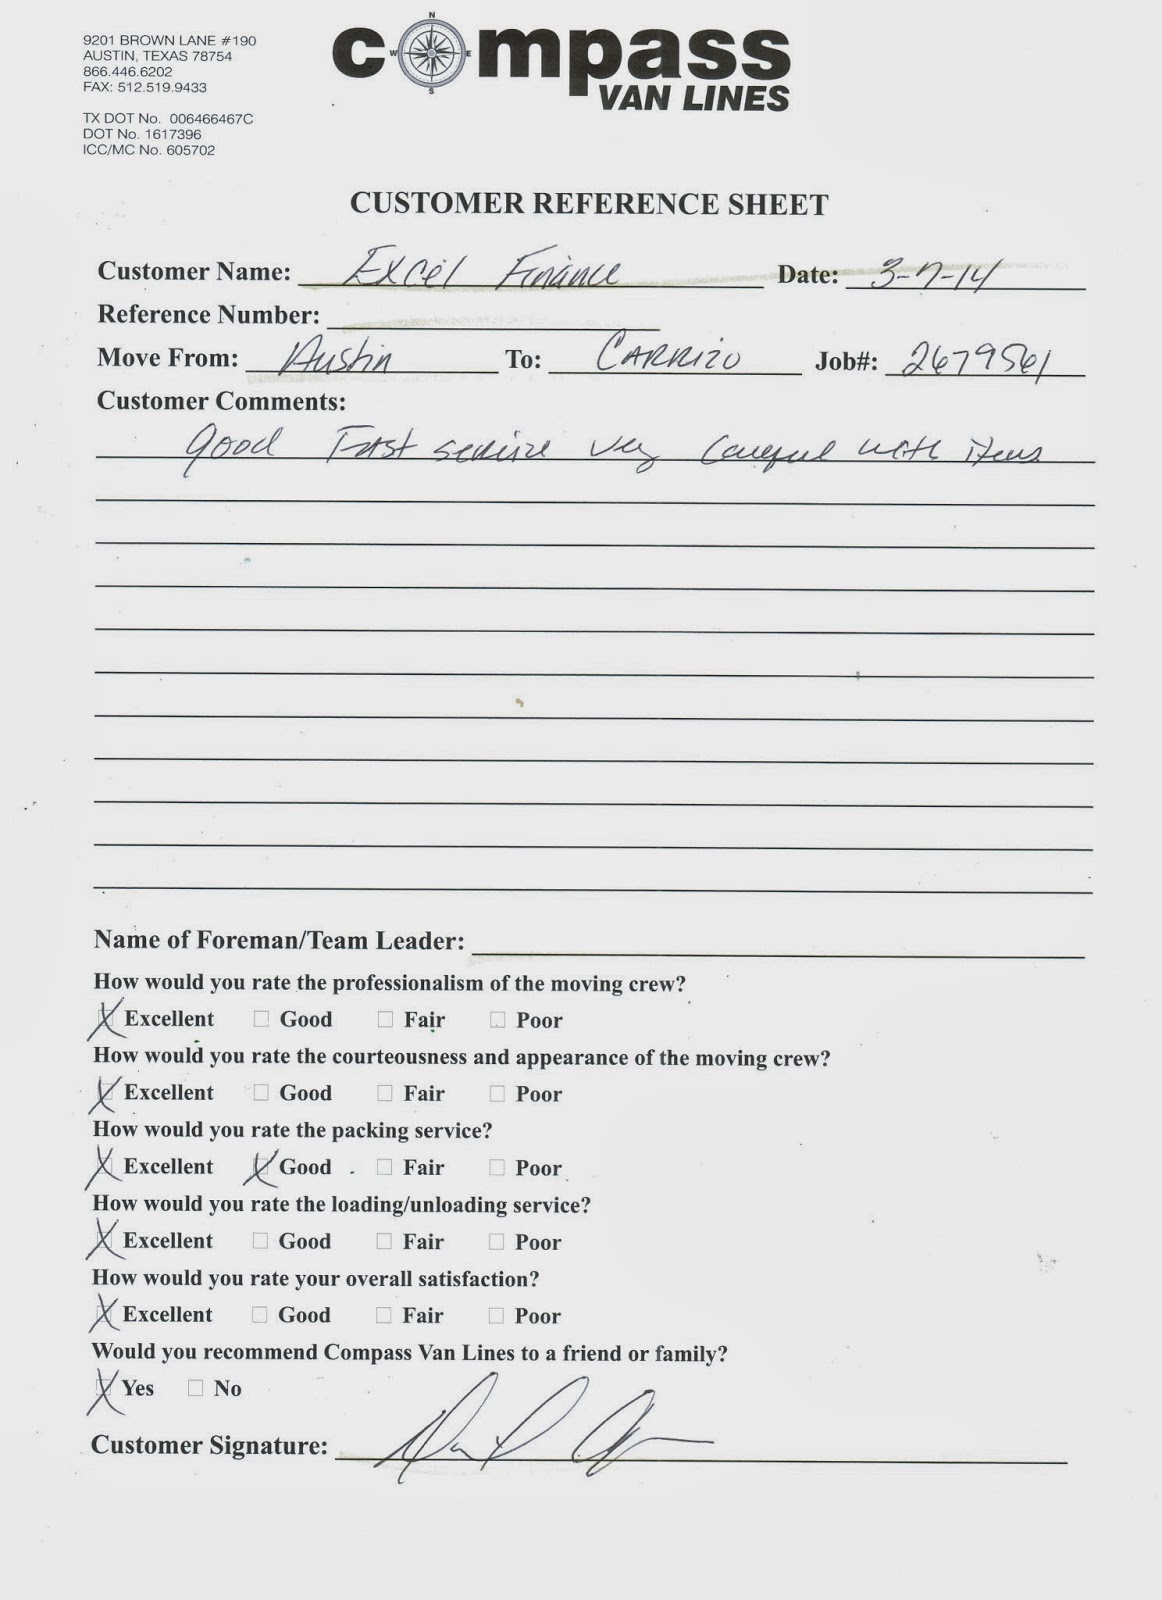 9201 BROWN LANE #190
AUSTIN, TEXAS 78754
866.446.6202
FAX: 512.519.9433
TX DOT No. 006466467C
DOT No. 1617396
ICC/MC No. 605702
N
W E
S
compass
VAN LINES
CUSTOMER REFERENCE SHEET
Customer Name: Excel Finance Date: 3-7-14
Reference Number:
Move From: Austin To: CARRIZO Job#: 2679561
Customer Comments:
good Fast service very careful with items
Name of Foreman/Team Leader:
How would you rate the professionalism of the moving crew?
X Excellent ☐ Good ☐ Fair ☐ Poor
How would you rate the courteousness and appearance of the moving crew?
X Excellent ☐ Good ☐ Fair ☐ Poor
How would you rate the packing service?
X Excellent X Good ☐ Fair ☐ Poor
How would you rate the loading/unloading service?
X Excellent ☐ Good ☐ Fair ☐ Poor
How would you rate your overall satisfaction?
X Excellent ☐ Good ☐ Fair ☐ Poor
Would you recommend Compass Van Lines to a friend or family?
X Yes ☐ No
Customer Signature: